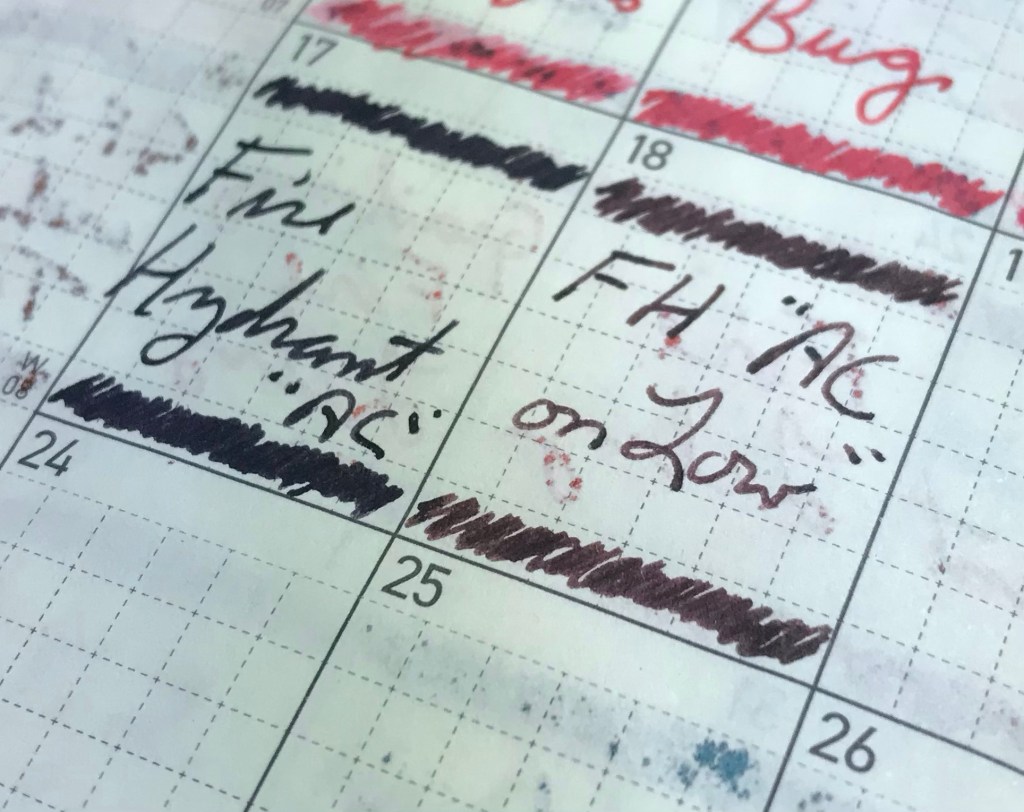 07
Bug
17
Fire
Hydrant
"AC"
18
FH "AC
on Low"
W
08
24
25
26